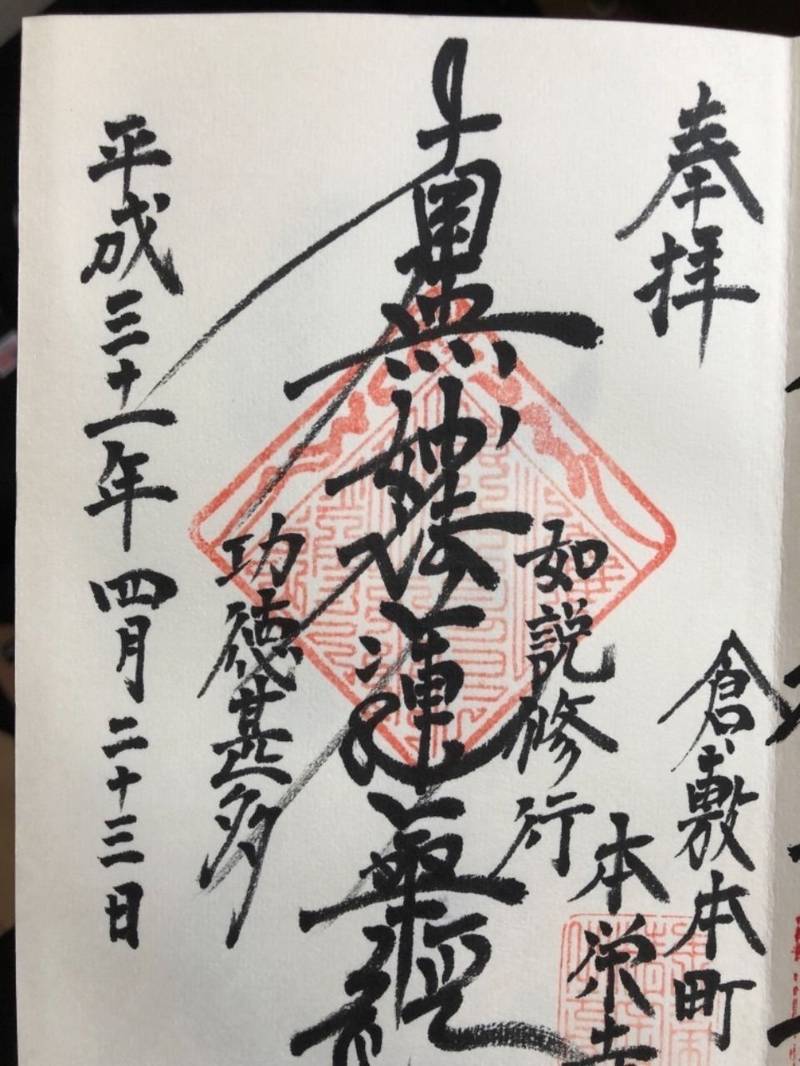 奉拝
倉敷本町
本栄寺
如説修行
南無妙法蓮華経
功徳甚多
平成三十一年四月二十三日